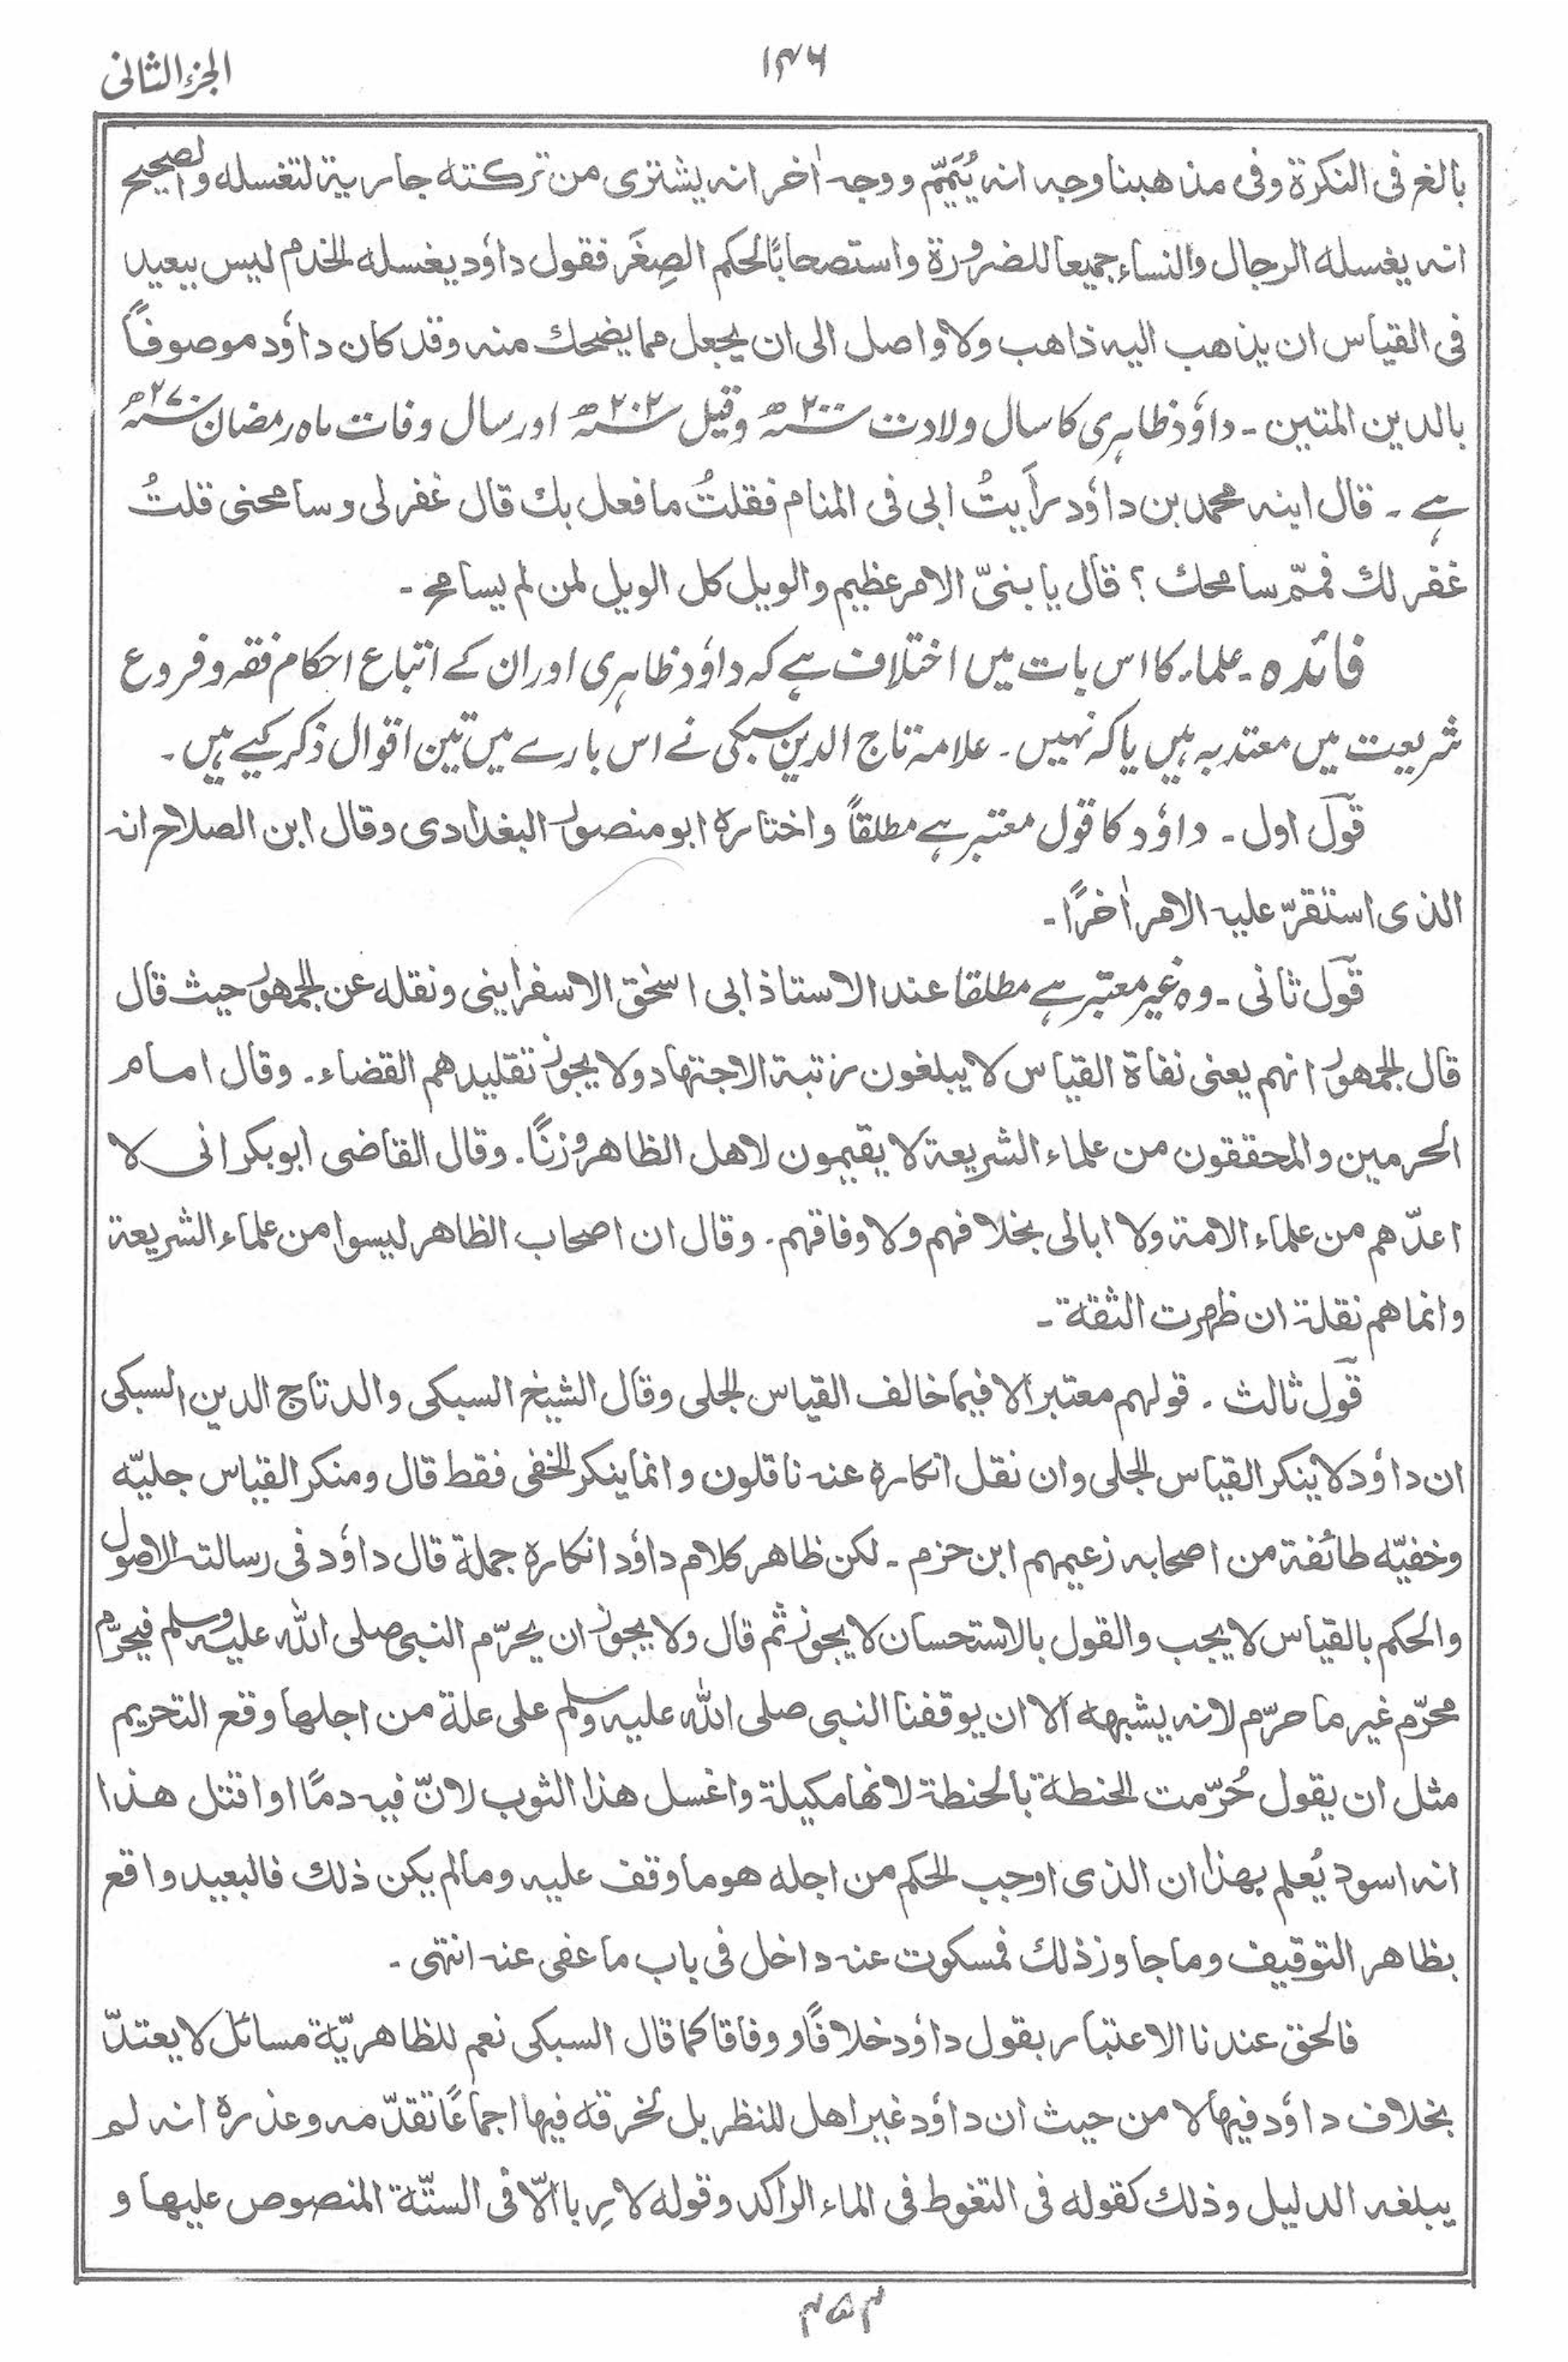 الجزء الثانی
۱۴۶
بالغ فی النکرۃ وفی مذھبنا وجہ انہ یُیَمَّم ووجہ اٰخر انہ یشتری من ترکتہ جاریۃ لتغسلہ والصحیح
انہ یغسلہ الرجال والنساء جمیعا للضرورۃ واستصحابًا لحکم الصِغَر فقول داؤد یغسلہ الخدم لیس ببعید
فی القیاس ان یذھب الیہ ذاھب ولا واصل الی ان یجعل مما یضحک منہ وقد کان داؤد موصوفًا
بالدین المتین ۔ داؤد ظاہری کا سال ولادت سنہ ۲۰۰ھ وقیل سنہ ۲۰۲ھ اور سال وفات ماہ رمضان سنہ ۲۷۰ھ
ہے ۔ قال ابنہ محمد بن داؤد رأیتُ ابی فی المنام فقلتُ ما فعل بک قال غفرلی وسامحنی قلتُ
غفر لک فممّ سامحک ؟ قال یا بنیّ الامر عظیم والویل کل الویل لمن لم یسامح ۔
فائدہ ۔ علماء کا اس بات میں اختلاف ہے کہ داؤد ظاہری اور ان کے اتباع احکام فقہ و فروع
شریعت میں معتد بہ ہیں یا کہ نہیں ۔ علامۃ تاج الدین سبکی نے اس بارے میں تین اقوال ذکر کیے ہیں ۔
قول اول ۔ داؤد کا قول معتبر ہے مطلقاً واختارہ ابو منصور البغدادی وقال ابن الصلاح انہ
الذی استقرّ علیہ الامر اٰخرًا ۔
قول ثانی ۔ وہ غیر معتبر ہے مطلقا عند الاستاذ ابی اسحٰق الاسفراینی ونقلہ عن الجمھور حیث قال
قال الجمھور انھم یعنی نفاۃ القیاس لا یبلغون رتبۃ الاجتھاد ولا یجوز تقلیدھم القضاء ۔ وقال امام
الحرمین والمحققون من علماء الشریعۃ لا یقیمون لاھل الظاھر وزنًا ۔ وقال القاضی ابو بکر انی لا
اعدّھم من علماء الامۃ ولا ابالی بخلافھم ولا وفاقھم ۔ وقال ان اصحاب الظاھر لیسوا من علماء الشریعۃ
وانما ھم نقلۃ ان ظھرت الثقۃ ۔
قول ثالث ۔ قولھم معتبر الا فیما خالف القیاس الجلی وقال الشیخ السبکی والد تاج الدین السبکی
ان داؤد لا ینکر القیاس الجلی وان نقل انکارہ عنہ ناقلون وانما ینکر الخفی فقط قال ومنکر القیاس جلیّہ
وخفیّہ طائفۃ من اصحابہ زعیمھم ابن حزم ۔ لکن ظاھر کلام داؤد انکارہ جملۃ قال داؤد فی رسالتہ الاصول
والحکم بالقیاس لا یجب والقول بالاستحسان لا یجوز ثم قال ولا یجوز ان یحرّم النبی صلی اللہ علیہ وسلم فیحرّم
محرّم غیر ما حرّم لانہ یشبھہ الا ان یوقفنا النبی صلی اللہ علیہ وسلم علی علۃ من اجلھا وقع التحریم
مثل ان یقول حُرّمت الحنطۃ بالحنطۃ لانھا مکیلۃ واغسل ھذا الثوب لانّ فیہ دمًا او اقتل ھذا
انہ اسود یُعلم بھذا ان الذی اوجب الحکم من اجلہ ھو ما وقف علیہ وما لم یکن ذلک فالبعید واقع
بظاھر التوقیف وما جاوز ذلک فمسکوت عنہ داخل فی باب ما عفی عنہ انتھی ۔
فالحق عندنا الاعتبار بقول داؤد خلافًا ووفاقا کما قال السبکی نعم للظاھریّۃ مسائل لا یعتدّ
بخلاف داؤد فیھا لا من حیث ان داؤد غیر اھل للنظر بل لخرقہ فیھا اجماعًا تقدّمہ وعذرہ انہ لم
یبلغہ الدلیل وذلک کقولہ فی التغوط فی الماء الراکد وقولہ لا رِبا الّا فی الستّۃ المنصوص علیھا و
۴۵۴